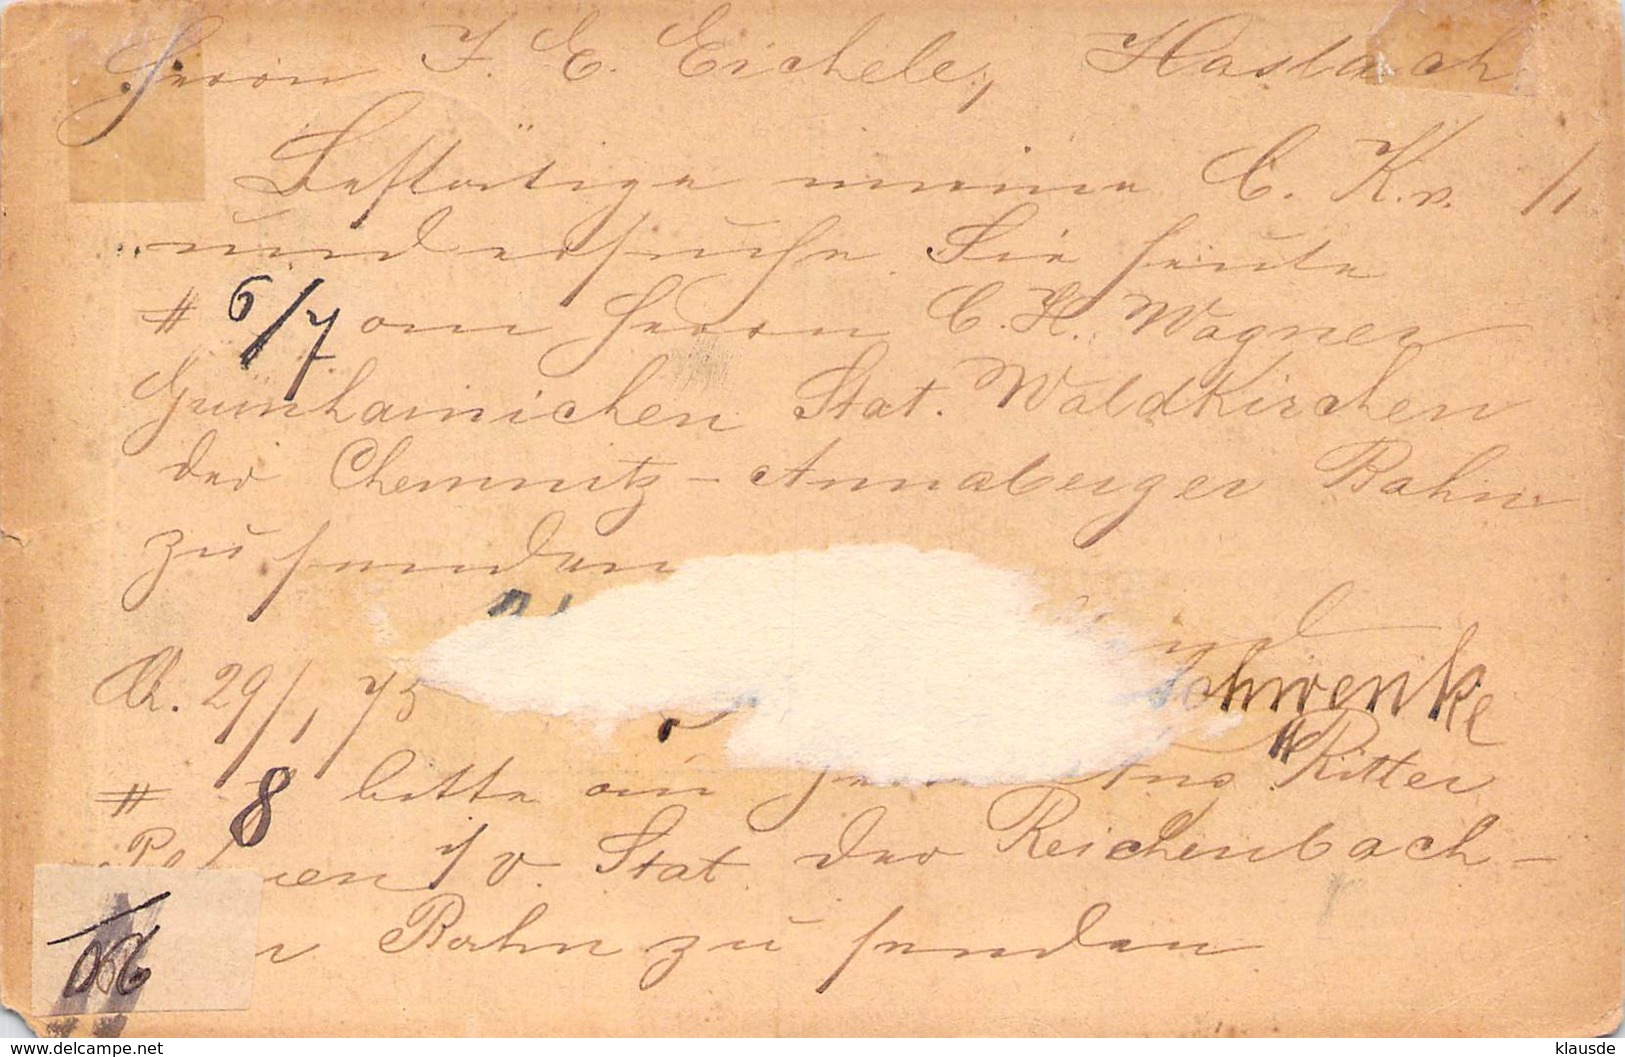 Herrn F. E. Eichele, Haslach
Bestätige meine C. K. v. /1
und ersuche Sie heute
# 6/7 an Herrn C. H. Wagner
Grünhainichen Stat. Waldkirchen
der Chemnitz-Annaberger Bahn
zu senden
29/1, 75 Schwenke
# 8 bitte an Ritter
Stat. der Reichenbach-
Bahn zu senden
www.delcampe.net
klausde